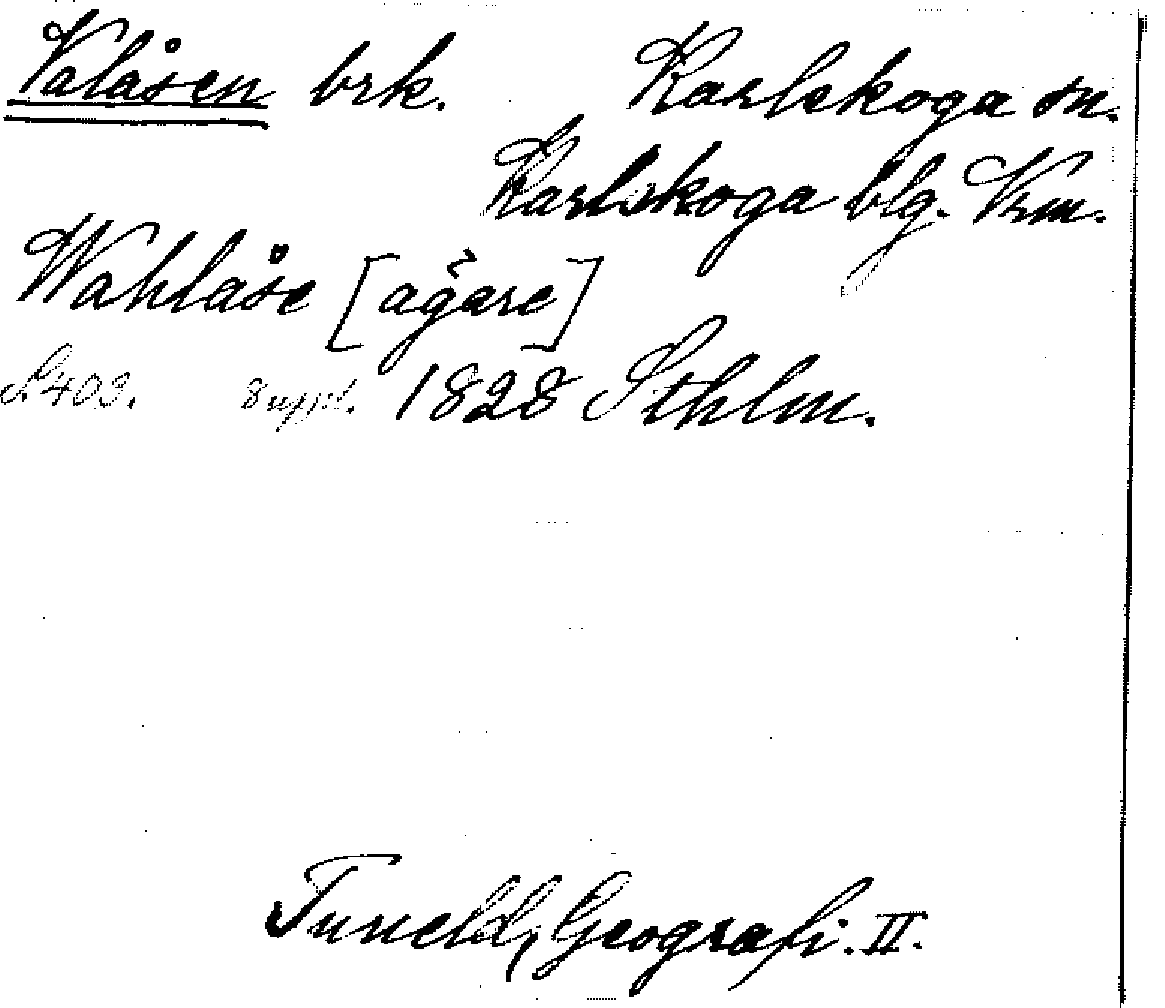 Valåsen brk. Karlskoga sn.
Karlskoga blg. Vrm.
Wahlåse [ägare]
S. 409. 8 uppl. 1828 Sthlm.
Tuneld, Geografi. II.